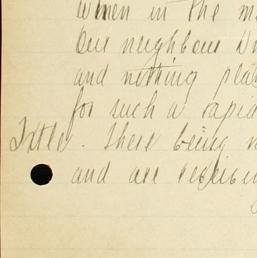 women in the m
Our neighbour D
and nothing pla
for such a rapid
Title. There being n
and are receivin